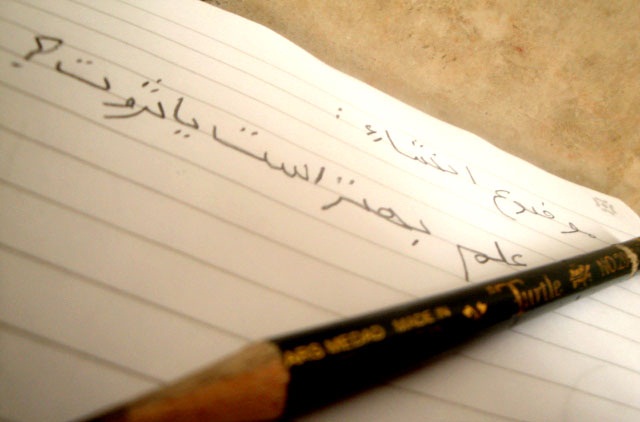 موضوع انشاء :
علم بهتر است یا ثروت ؟
Turtle NO 2
ARS MEDAD MADE IN